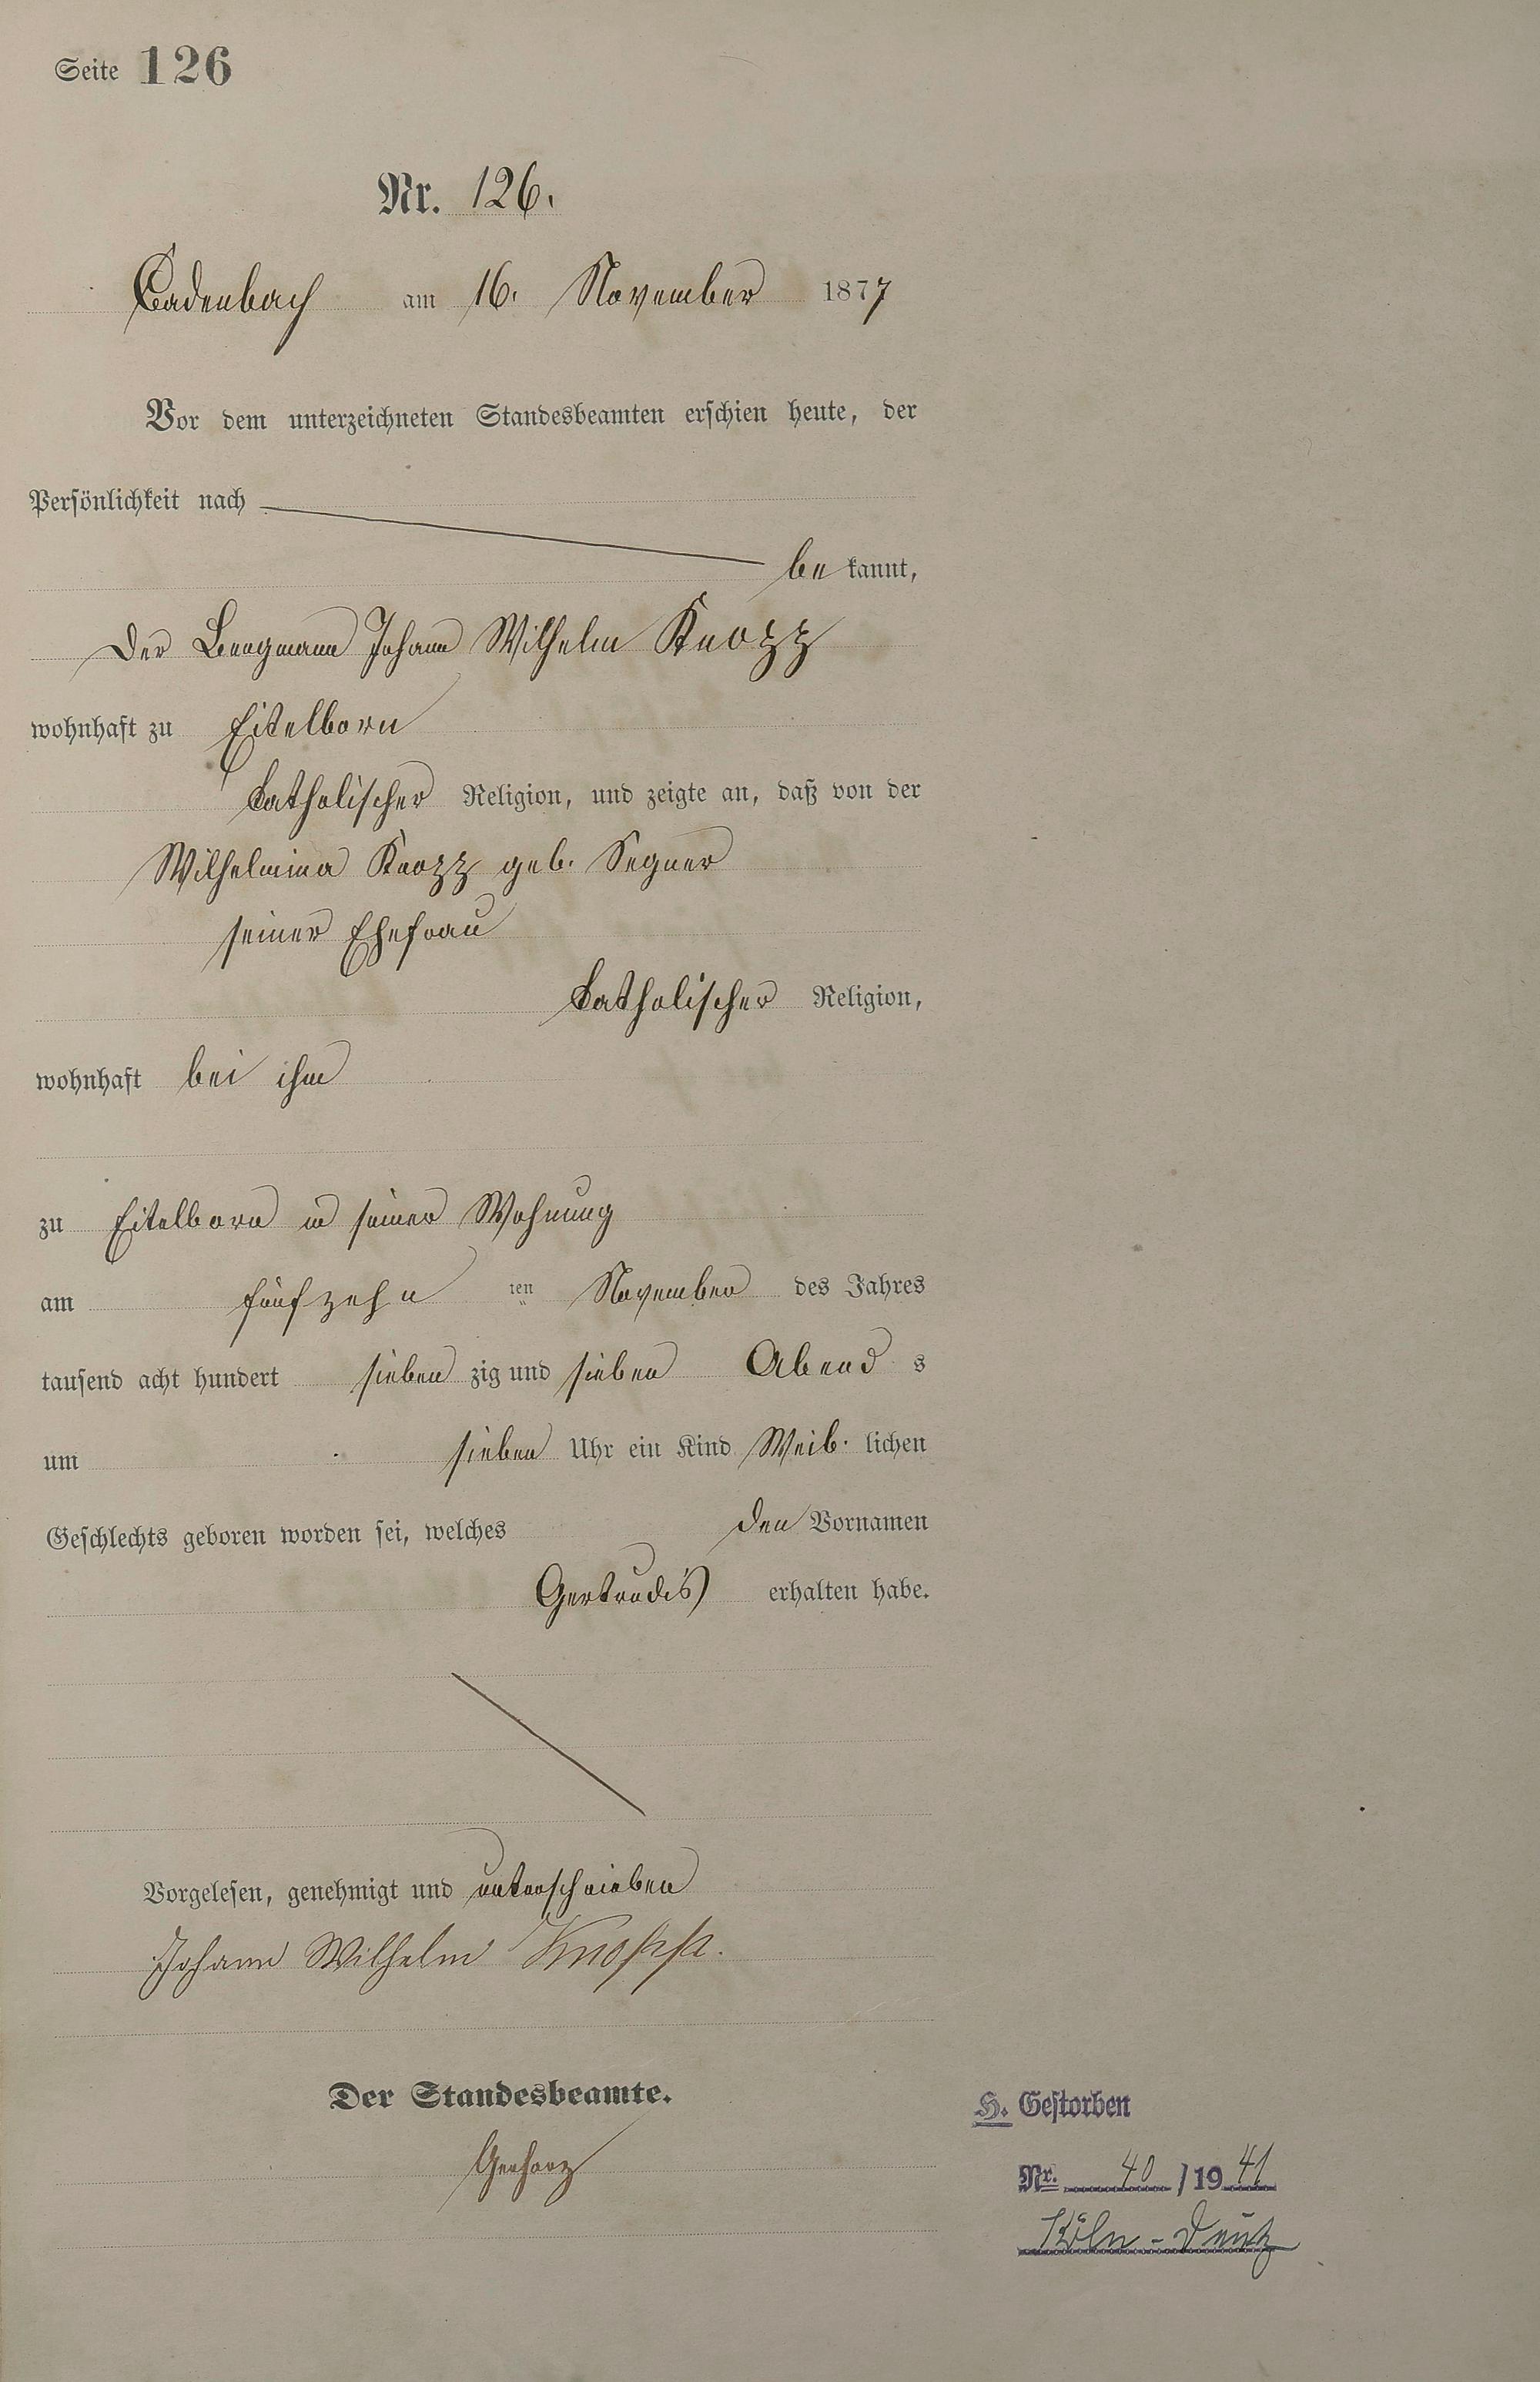 Seite 126
Nr. 126.
Cadenbach am 16. November 1877
Vor dem unterzeichneten Standesbeamten erschien heute, der
Persönlichkeit nach
be kannt,
Der Bergmann Johann Wilhelm Knopp
wohnhaft zu Eitelborn
katholischer Religion, und zeigte an, daß von der
Wilhelmina Knopp geb. Segner
seiner Ehefrau
katholischer Religion,
wohnhaft bei ihm
zu Eitelborn in seiner Wohnung
am fünfzehn ten November des Jahres
tausend acht hundert sieben zig und sieben Abend s
um sieben Uhr ein Kind Weib. lichen
Geschlechts geboren worden sei, welches den Vornamen
Gertrudis erhalten habe.
Vorgelesen, genehmigt und unterschrieben
Johann Wilhelm Knopp.
Der Standesbeamte.
Gerharz
H. Gestorben
Nr. 40 / 19 41
Köln-Deutz